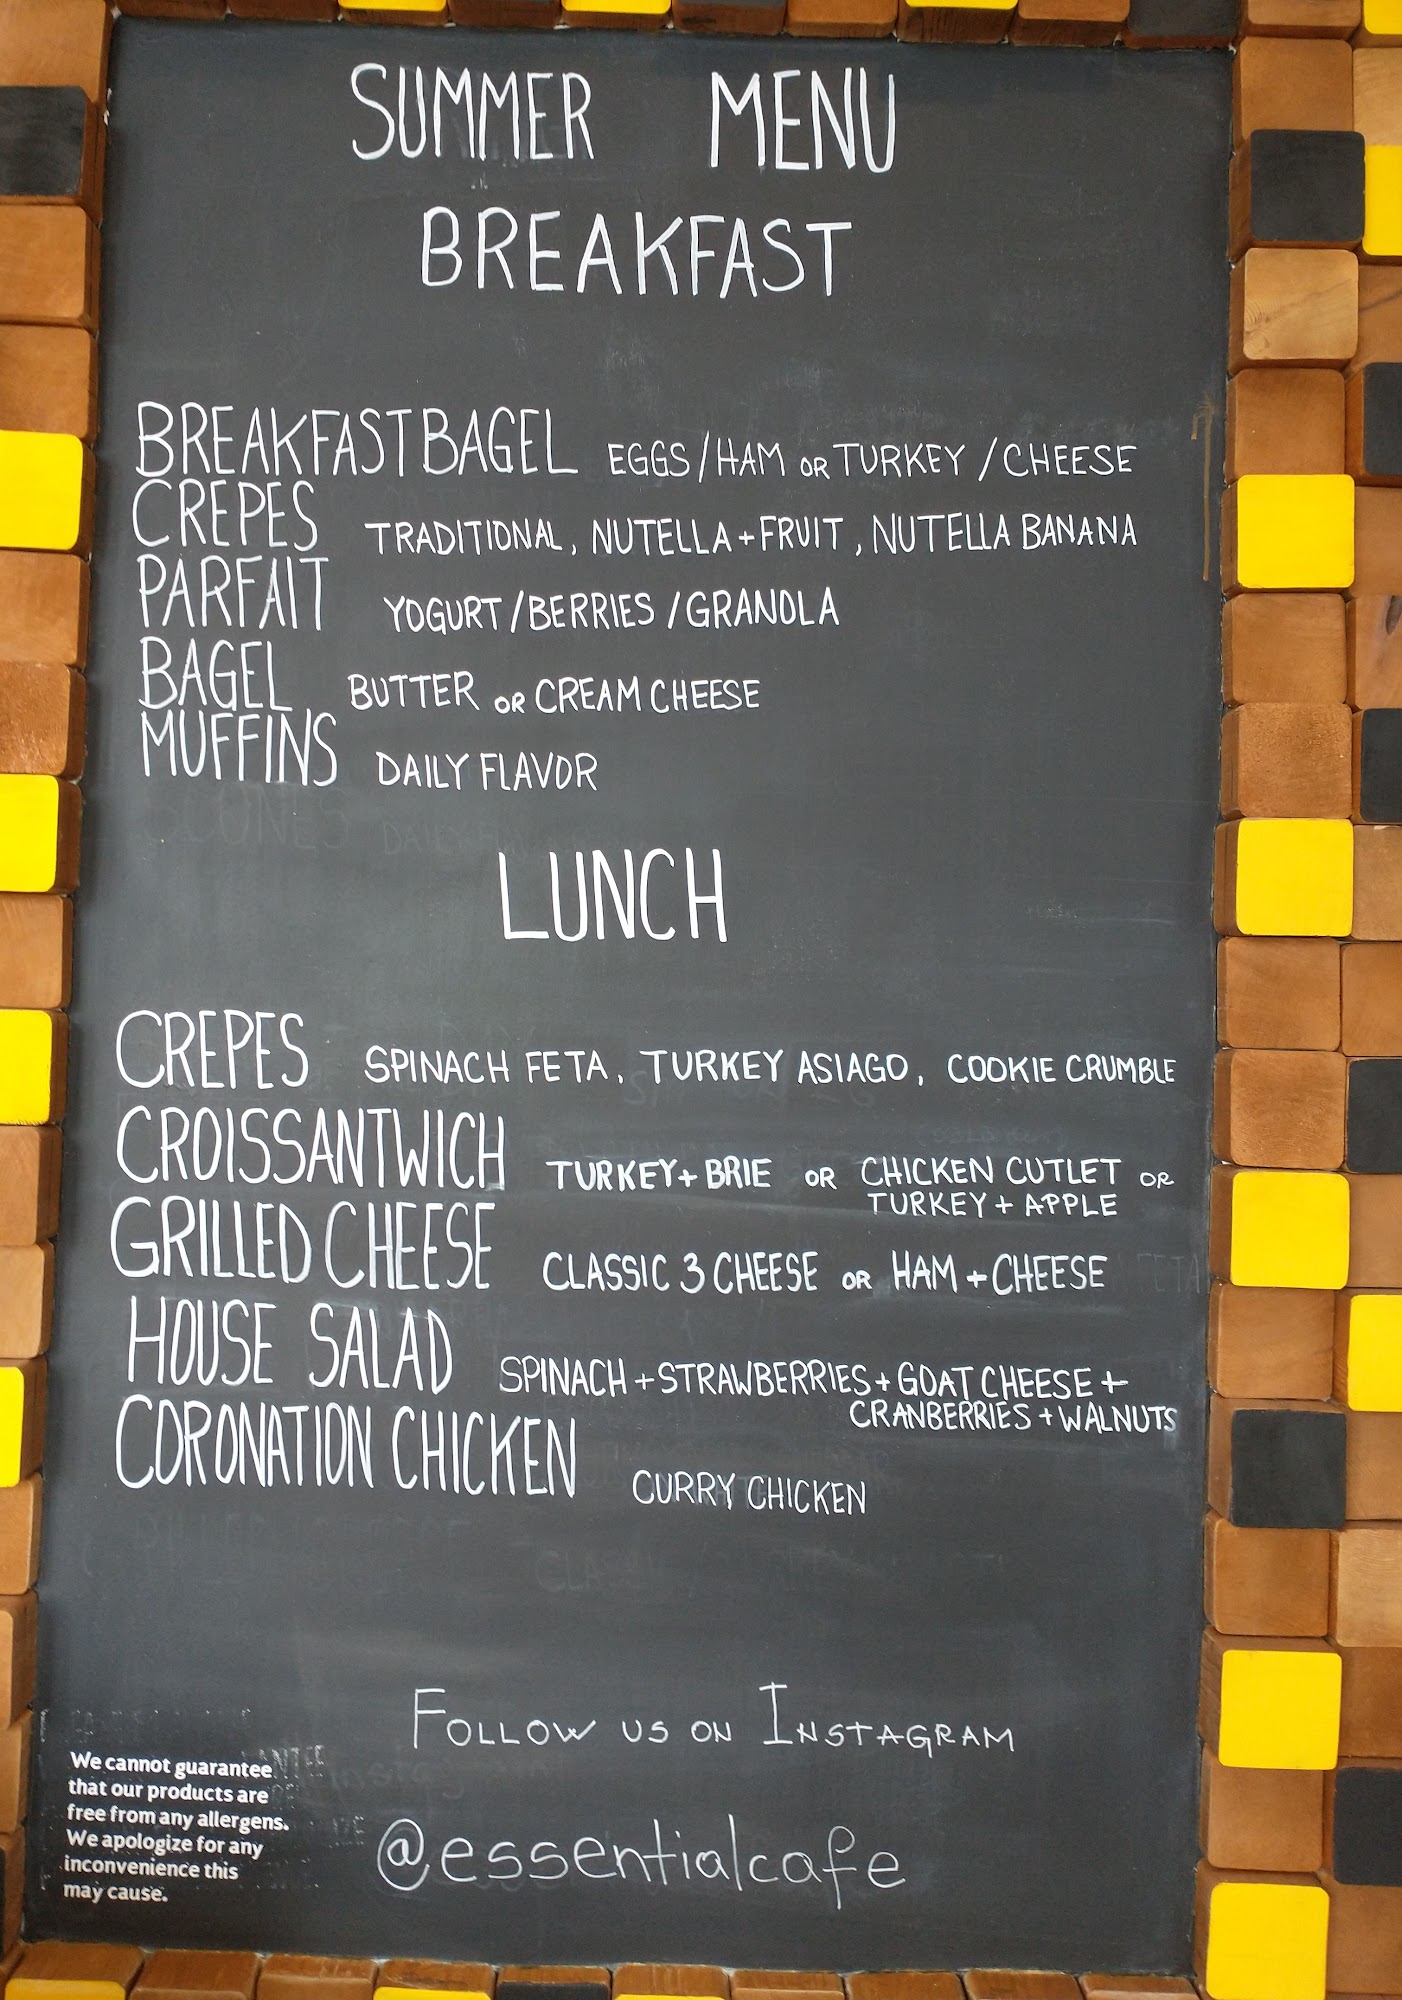 SUMMER MENU
BREAKFAST
BREAKFAST BAGEL EGGS/HAM OR TURKEY/CHEESE
CREPES TRADITIONAL, NUTELLA+FRUIT, NUTELLA BANANA
PARFAIT YOGURT/BERRIES/GRANOLA
BAGEL BUTTER OR CREAM CHEESE
MUFFINS DAILY FLAVOR
SCONES DAILY
LUNCH
CREPES SPINACH FETA, TURKEY ASIAGO, COOKIE CRUMBLE
CROISSANTWICH TURKEY+BRIE OR CHICKEN CUTLET OR
TURKEY+APPLE
GRILLED CHEESE CLASSIC 3 CHEESE OR HAM+CHEESE FETA
HOUSE SALAD SPINACH+STRAWBERRIES+GOAT CHEESE+
CRANBERRIES+WALNUTS
CORONATION CHICKEN CURRY CHICKEN
FOLLOW US ON INSTAGRAM
@essentialcafe
We cannot guarantee
that our products are
free from any allergens.
We apologize for any
inconvenience this
may cause.